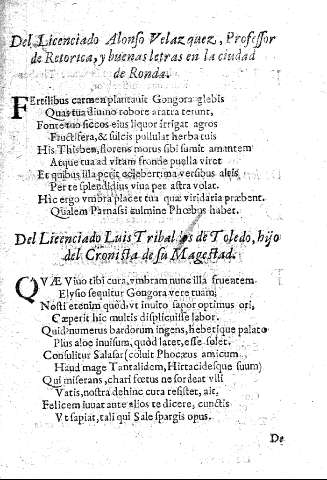 Del Licenciado Alonso Velazquez, Professor
de Retorica, y buenas letras en la ciudad
de Ronda.
FErtilibus carmen plantauit Gongora glebis
Quas tua diuino robore aratra terunt,
Fonte tuo siccos eius liquor irrigat agros
Fructifera, & sulcis pullulat herba tuis
His Thisben, florens morus sibi sumit amantem
Atque tua ad vitam fronde puella viret
Et quibus illa perit celebert: ma versibus altis
Per te splendidius viua per astra volat.
Hic ergo vmbra placet tua quæ viridaria præbent.
Qualem Parnassi culmine Phœbus habet.
Del Licenciado Luis Tribal os de Toledo, hijo
del Cronista de su Magestad.
QVÆ Viuo tibi cura, vmbram nunc illa fruentem
Elysio sequitur Gongora vere tuam;
Nosti etenim quod vt inuito sapor optimus ori,
Cæperit hic multis displicuisse labor.
Quid numerus bardorum ingens, hebetique palato
Plus aloe inuisum, quod latet, esse solet.
Consulitur Salasar (coluit Phocæus amicum
Haud mage Tantalidem, Hirtacidesque suum)
Qui miserans, chari fœtus ne sordeat vili
Vatis, nostra dehinc cura resistet, ait.
Felicem iuuat ante alios te dicere, cunctis
Vt sapiat, tali qui Sale spargis opus.
De